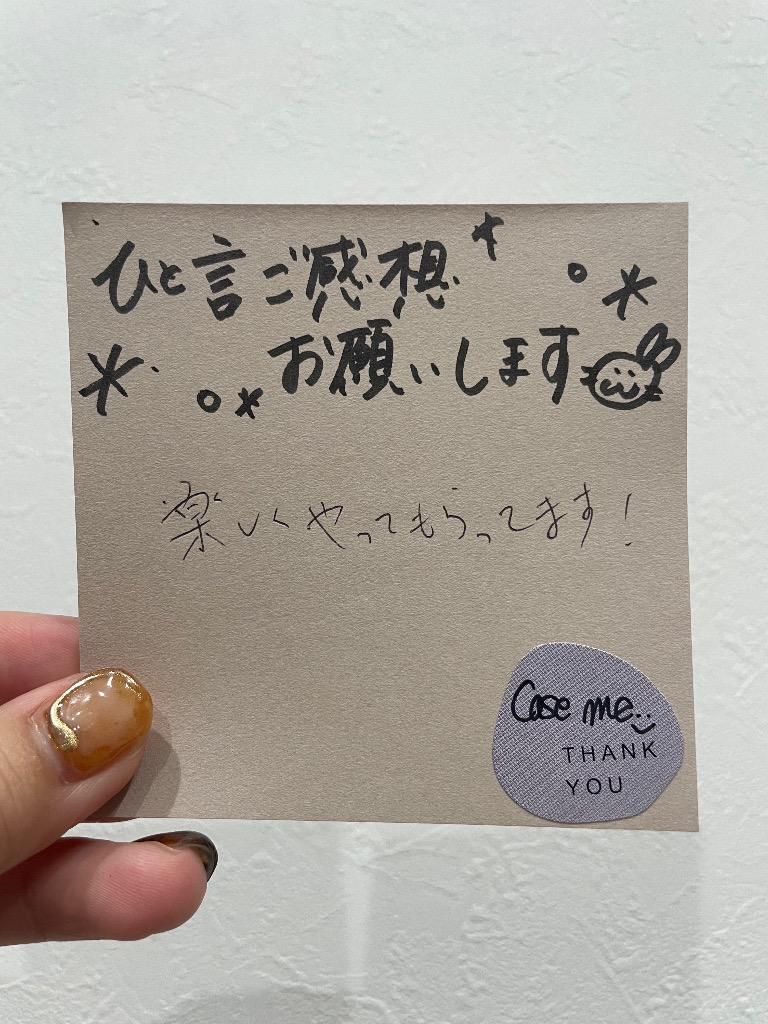 ひと言ご感想
お願いします
楽しくやってもらってます!
Case me
THANK
YOU